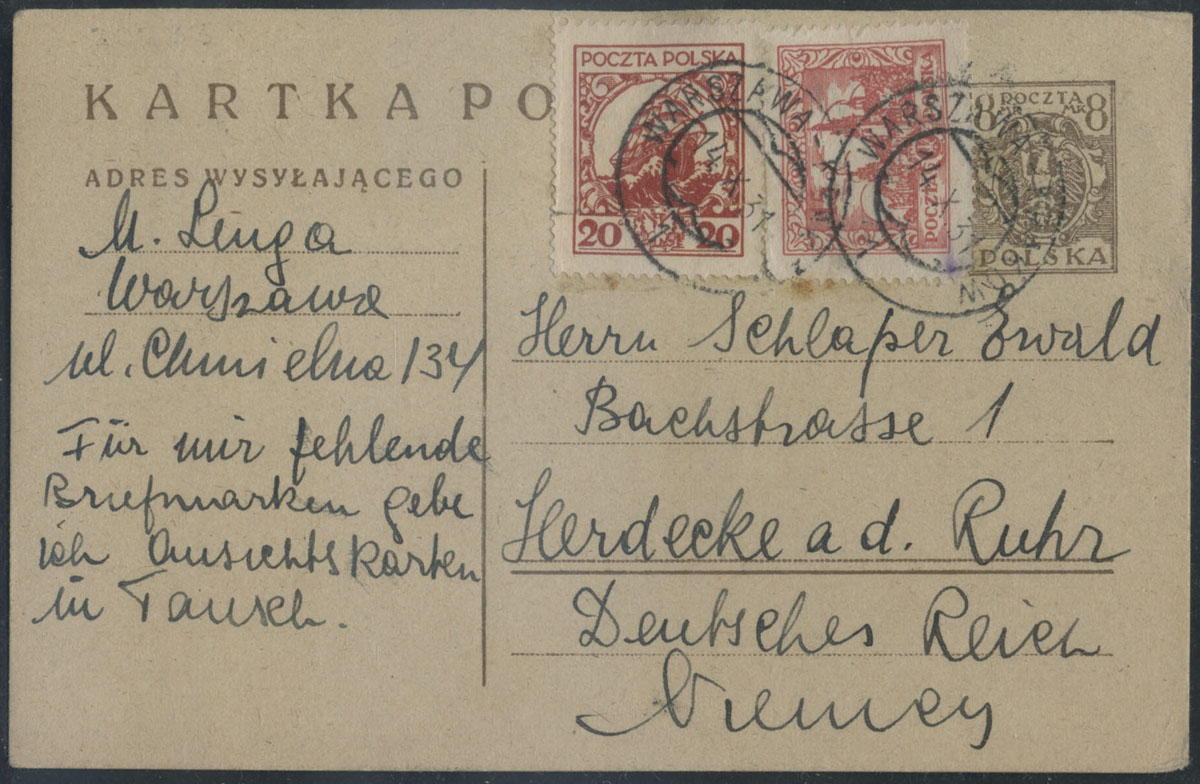 KARTKA PO
ADRES WYSYŁAJĄCEGO
M. Lenga
Warszawa
ul. Chmielna 134
Für mir fehlende
Briefmarken gebe
ich Ansichtskarten
in Tausch.
POCZTA POLSKA
20 20
WARSZAWA
14 X 31
WARSZAWA
14 X 31
8 POCZTA MK 8
POLSKA
Herrn Schlaper Ewald
Bachstrasse 1
Herdecke a d. Ruhr
Deutsches Reich
Niemcy